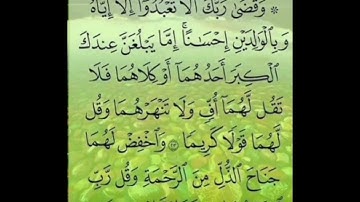 ۞ وَقَضَىٰ رَبُّكَ أَلَّا تَعْبُدُوٓا۟ إِلَّآ إِيَّاهُ
وَبِٱلْوَٰلِدَيْنِ إِحْسَٰنًا ۚ إِمَّا يَبْلُغَنَّ عِندَكَ
ٱلْكِبَرَ أَحَدُهُمَآ أَوْ كِلَاهُمَا فَلَا
تَقُل لَّهُمَآ أُفٍّ وَلَا تَنْهَرْهُمَا وَقُل
لَّهُمَا قَوْلًا كَرِيمًا ٢٣ وَٱخْفِضْ لَهُمَا
جَنَاحَ ٱلذُّلِّ مِنَ ٱلرَّحْمَةِ وَقُل رَّبِّ